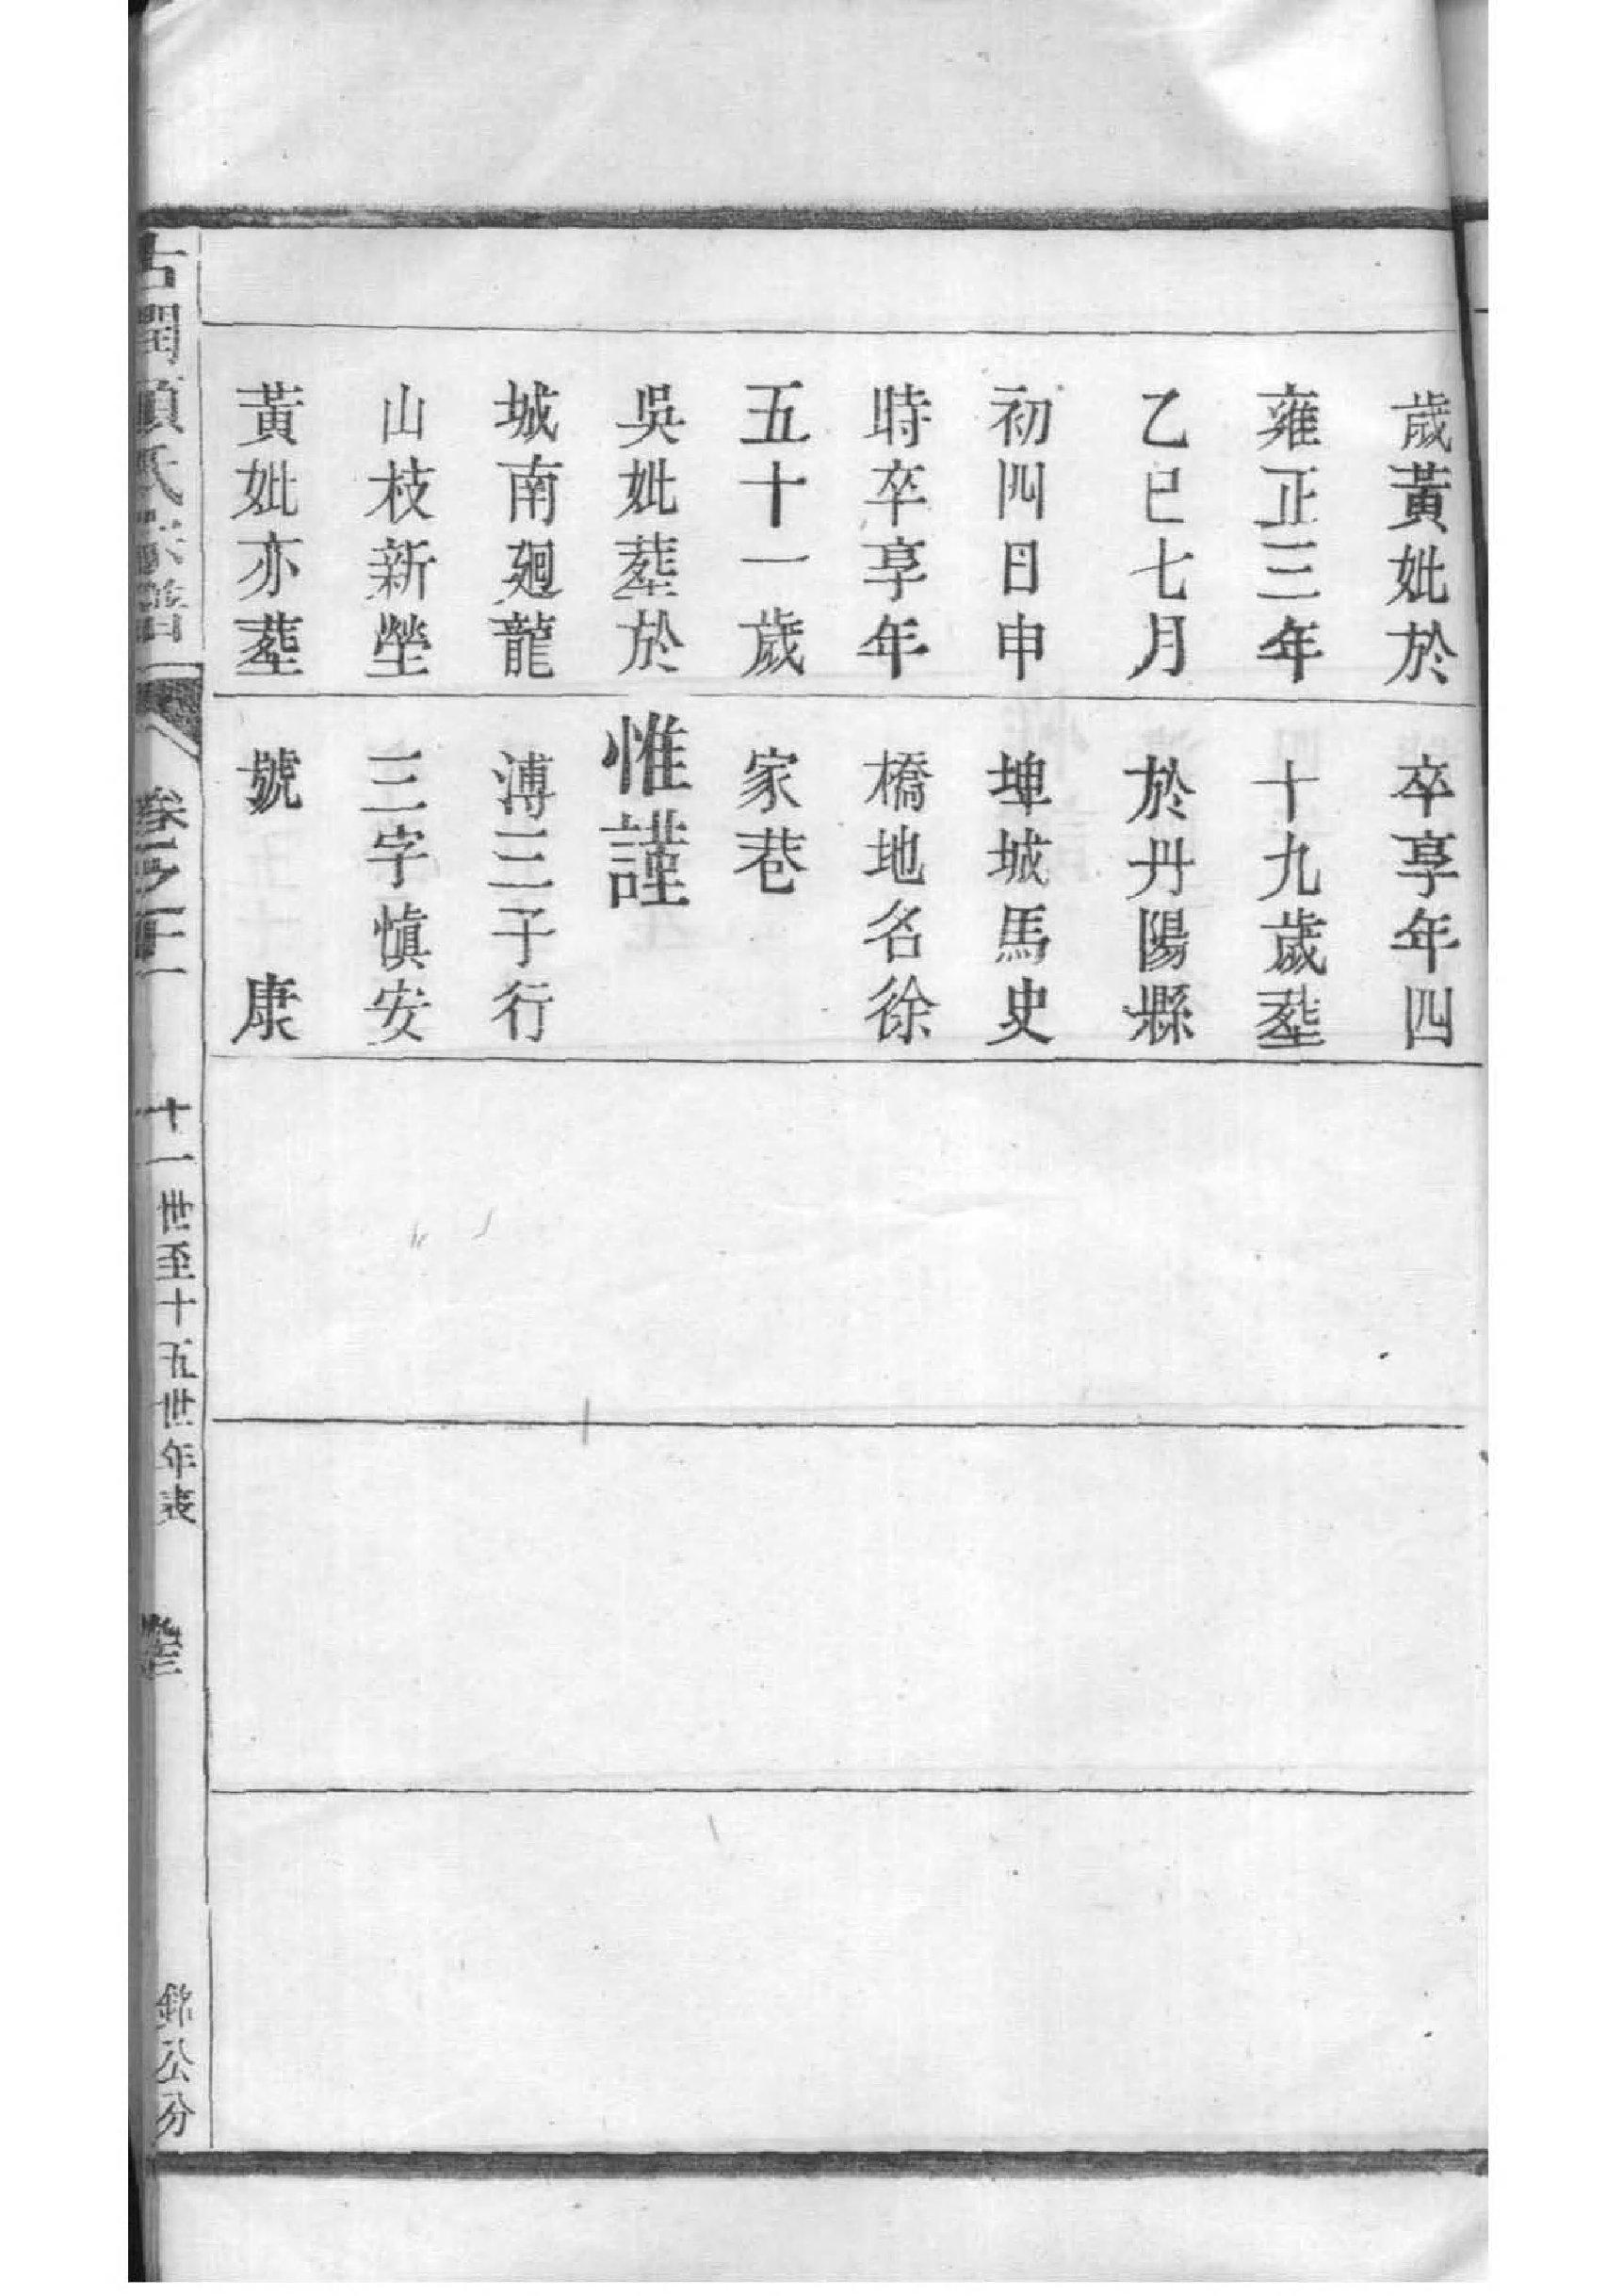 歲黃妣於
雍正三年
乙巳七月
初四日申
時卒享年
五十一歲
吳妣塟於
城南廻龍
山枝新塋
黃妣亦塟
卒享年四
十九歲塟
於丹陽縣
埤城馬史
橋地名徐
家巷
惟謹
溥三子行
三字愼安
號　康
古潤顧氏宗譜
卷之十一
十一世至十五世年表
公分